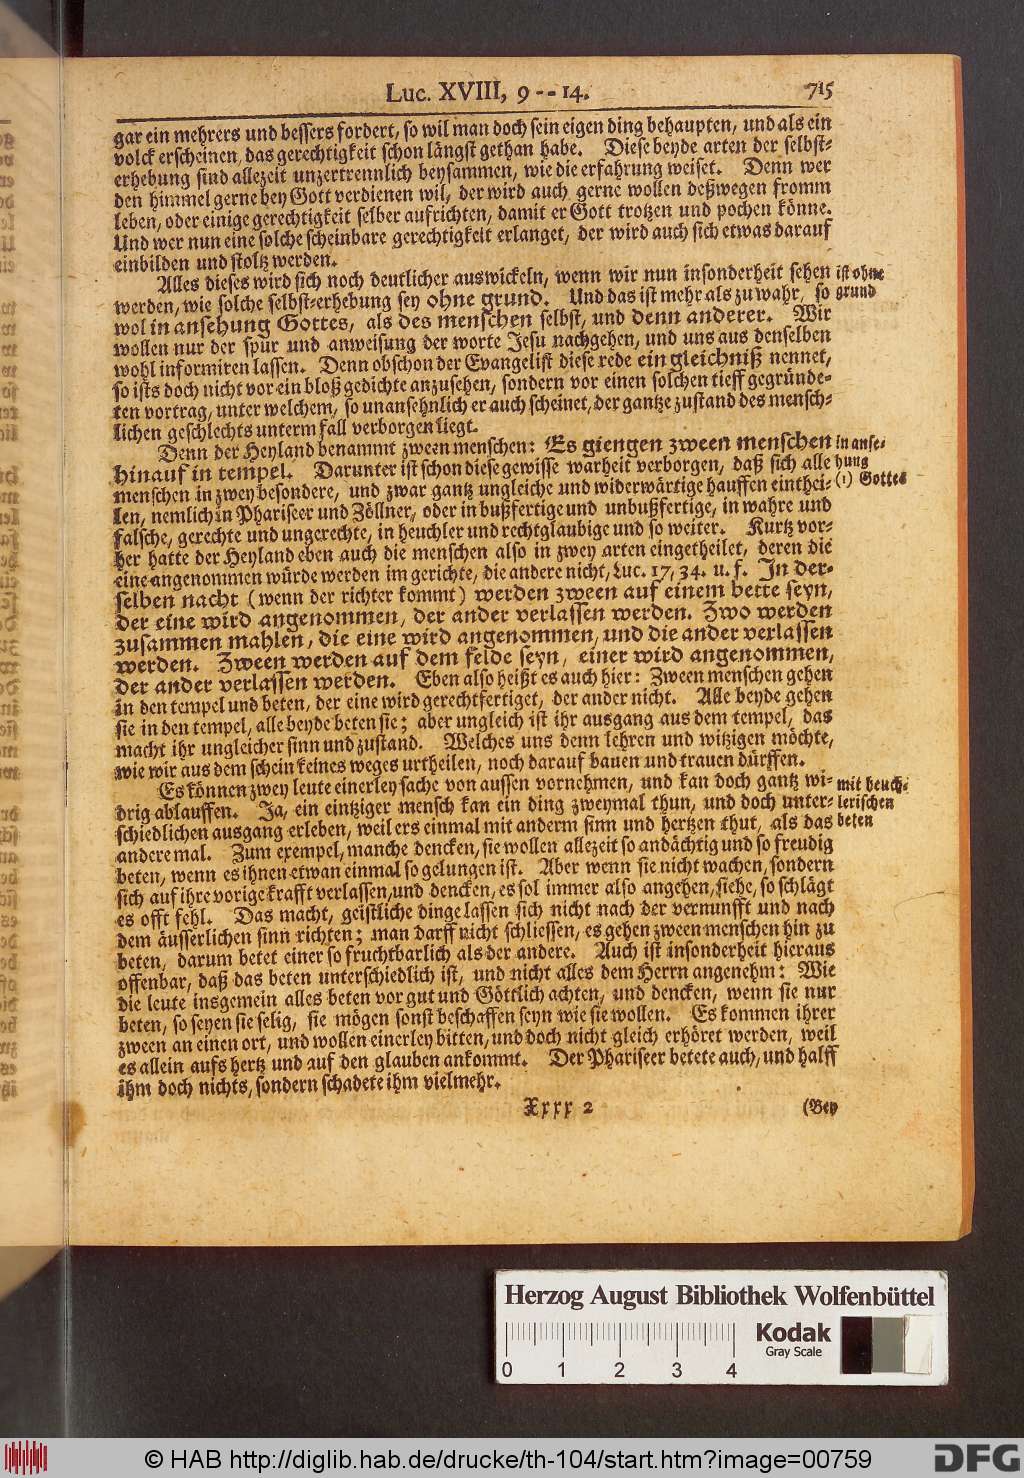 Luc. XVIII, 9 -- 14. 715
gar ein mehrers und bessers fordert, so wil man doch sein eigen ding behaupten, und als ein
volck erscheinen, das gerechtigkeit schon längst gethan habe. Diese beyde arten der selbst-
erhebung sind allezeit unzertrennlich beysammen, wie die erfahrung weiset. Denn wer
den himmel gerne bey Gott verdienen wil, der wird auch gerne wollen deßwegen fromm
leben, oder einige gerechtigkeit selber aufrichten, damit er Gott trotzen und pochen könne.
Und wer nun eine solche scheinbare gerechtigkeit erlanget, der wird auch sich etwas darauf
einbilden und stoltz werden.
Alles dieses wird sich noch deutlicher auswickeln, wenn wir nun insonderheit sehen
ist ohne
werden, wie solche selbst-erhebung sey ohne grund. Und das ist mehr als zu wahr, so
grund
wol in ansehung Gottes, als des menschen selbst, und denn anderer. Wir
wollen nur der spur und anweisung der worte Jesu nachgehen, und uns aus denselben
wohl informiren lassen. Denn obschon der Evangelist diese rede ein gleichniß nennet,
so ists doch nicht vor ein bloß gedichte anzusehen, sondern vor einen solchen tieff gegründe-
ten vortrag, unter welchem, so unansehnlich er auch scheinet, der gantze zustand des mensch-
lichen geschlechts unterm fall verborgen liegt.
Denn der Heyland benamt zween menschen: Es giengen zween menschen
in anse-
hinauf in tempel. Darunter ist schon diese gewisse warheit verborgen, daß sich alle
hung
menschen in zwey besondere, und zwar gantz ungleiche und widerwärtige hauffen einthei-
(1) Gottes
len, nemlich in Phariseer und Zöllner, oder in bußfertige und unbußfertige, in wahre und
falsche, gerechte und ungerechte, in heuchler und rechtglaubige und so weiter. Kurtz vor-
her hatte der Heyland eben auch die menschen also in zwey arten eingetheilet, deren die
eine angenommen würde werden im gerichte, die andere nicht, Luc. 17, 34. u. f. In der-
selben nacht (wenn der richter kommt) werden zween auf einem bette seyn,
der eine wird angenommen, der ander verlassen werden. Zwo werden
zusammen mahlen, die eine wird angenommen, und die ander verlassen
werden. Zween werden auf dem felde seyn, einer wird angenommen,
der ander verlassen werden. Eben also heißt es auch hier: Zween menschen gehen
in den tempel und beten, der eine wird gerechtfertiget, der ander nicht. Alle beyde gehen
sie in den tempel, alle beyde beten sie; aber ungleich ist ihr ausgang aus dem tempel, das
macht ihr ungleicher sinn und zustand. Welches uns denn lehren und witzigen möchte,
wie wir aus dem schein keines weges urtheilen, noch darauf bauen und trauen dürffen.
Es können zwey leute einerley sache von aussen vornehmen, und kan doch gantz wi-
mit heuch-
drig ablauffen. Ja, ein eintziger mensch kan ein ding zweymal thun, und doch unter-
lerischen
schiedlichen ausgang erleben, weil ers einmal mit anderm sinn und hertzen thut, als das
beten
andere mal. Zum exempel, manche dencken, sie wollen allezeit so andächtig und so freudig
beten, wenn es ihnen etwan einmal so gelungen ist. Aber wenn sie nicht wachen, sondern
sich auf ihre vorige krafft verlassen, und dencken, es sol immer also angehen, siehe, so schlägt
es offt fehl. Das macht, geistliche dinge lassen sich nicht nach der vernunfft und nach
dem äusserlichen sinn richten; man darff nicht schliessen, es gehen zween menschen hin zu
beten, darum betet einer so fruchtbarlich als der andere. Auch ist insonderheit hieraus
offenbar, daß das beten unterschiedlich ist, und nicht alles dem Herrn angenehm: Wie
die leute insgemein alles beten vor gut und Göttlich achten, und dencken, wenn sie nur
beten, so seyen sie selig, sie mögen sonst beschaffen seyn wie sie wollen. Es kommen ihrer
zween an einen ort, und wollen einerley bitten, und doch nicht gleich erhöret werden, weil
es allein aufs hertz und auf den glauben ankommt. Der Phariseer betete auch, und halff
ihm doch nichts, sondern schadete ihm vielmehr.
Xxxx 2 (Bey
Herzog August Bibliothek Wolfenbüttel
0 1 2 3 4
Kodak
Gray Scale
© HAB http://diglib.hab.de/drucke/th-104/start.htm?image=00759
DFG